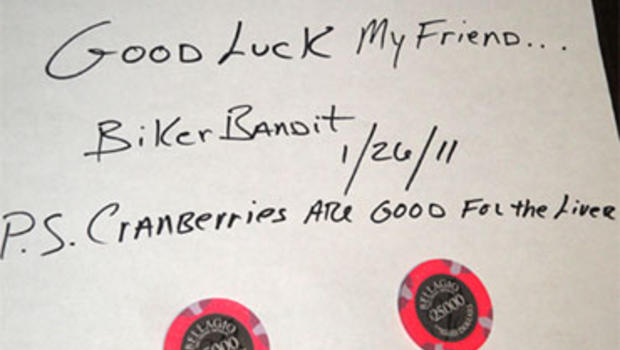 Good Luck My Friend...
Biker Bandit
1/26/11
P.S. Cranberries Are Good For the Liver
BELLAGIO
25000
BELLAGIO